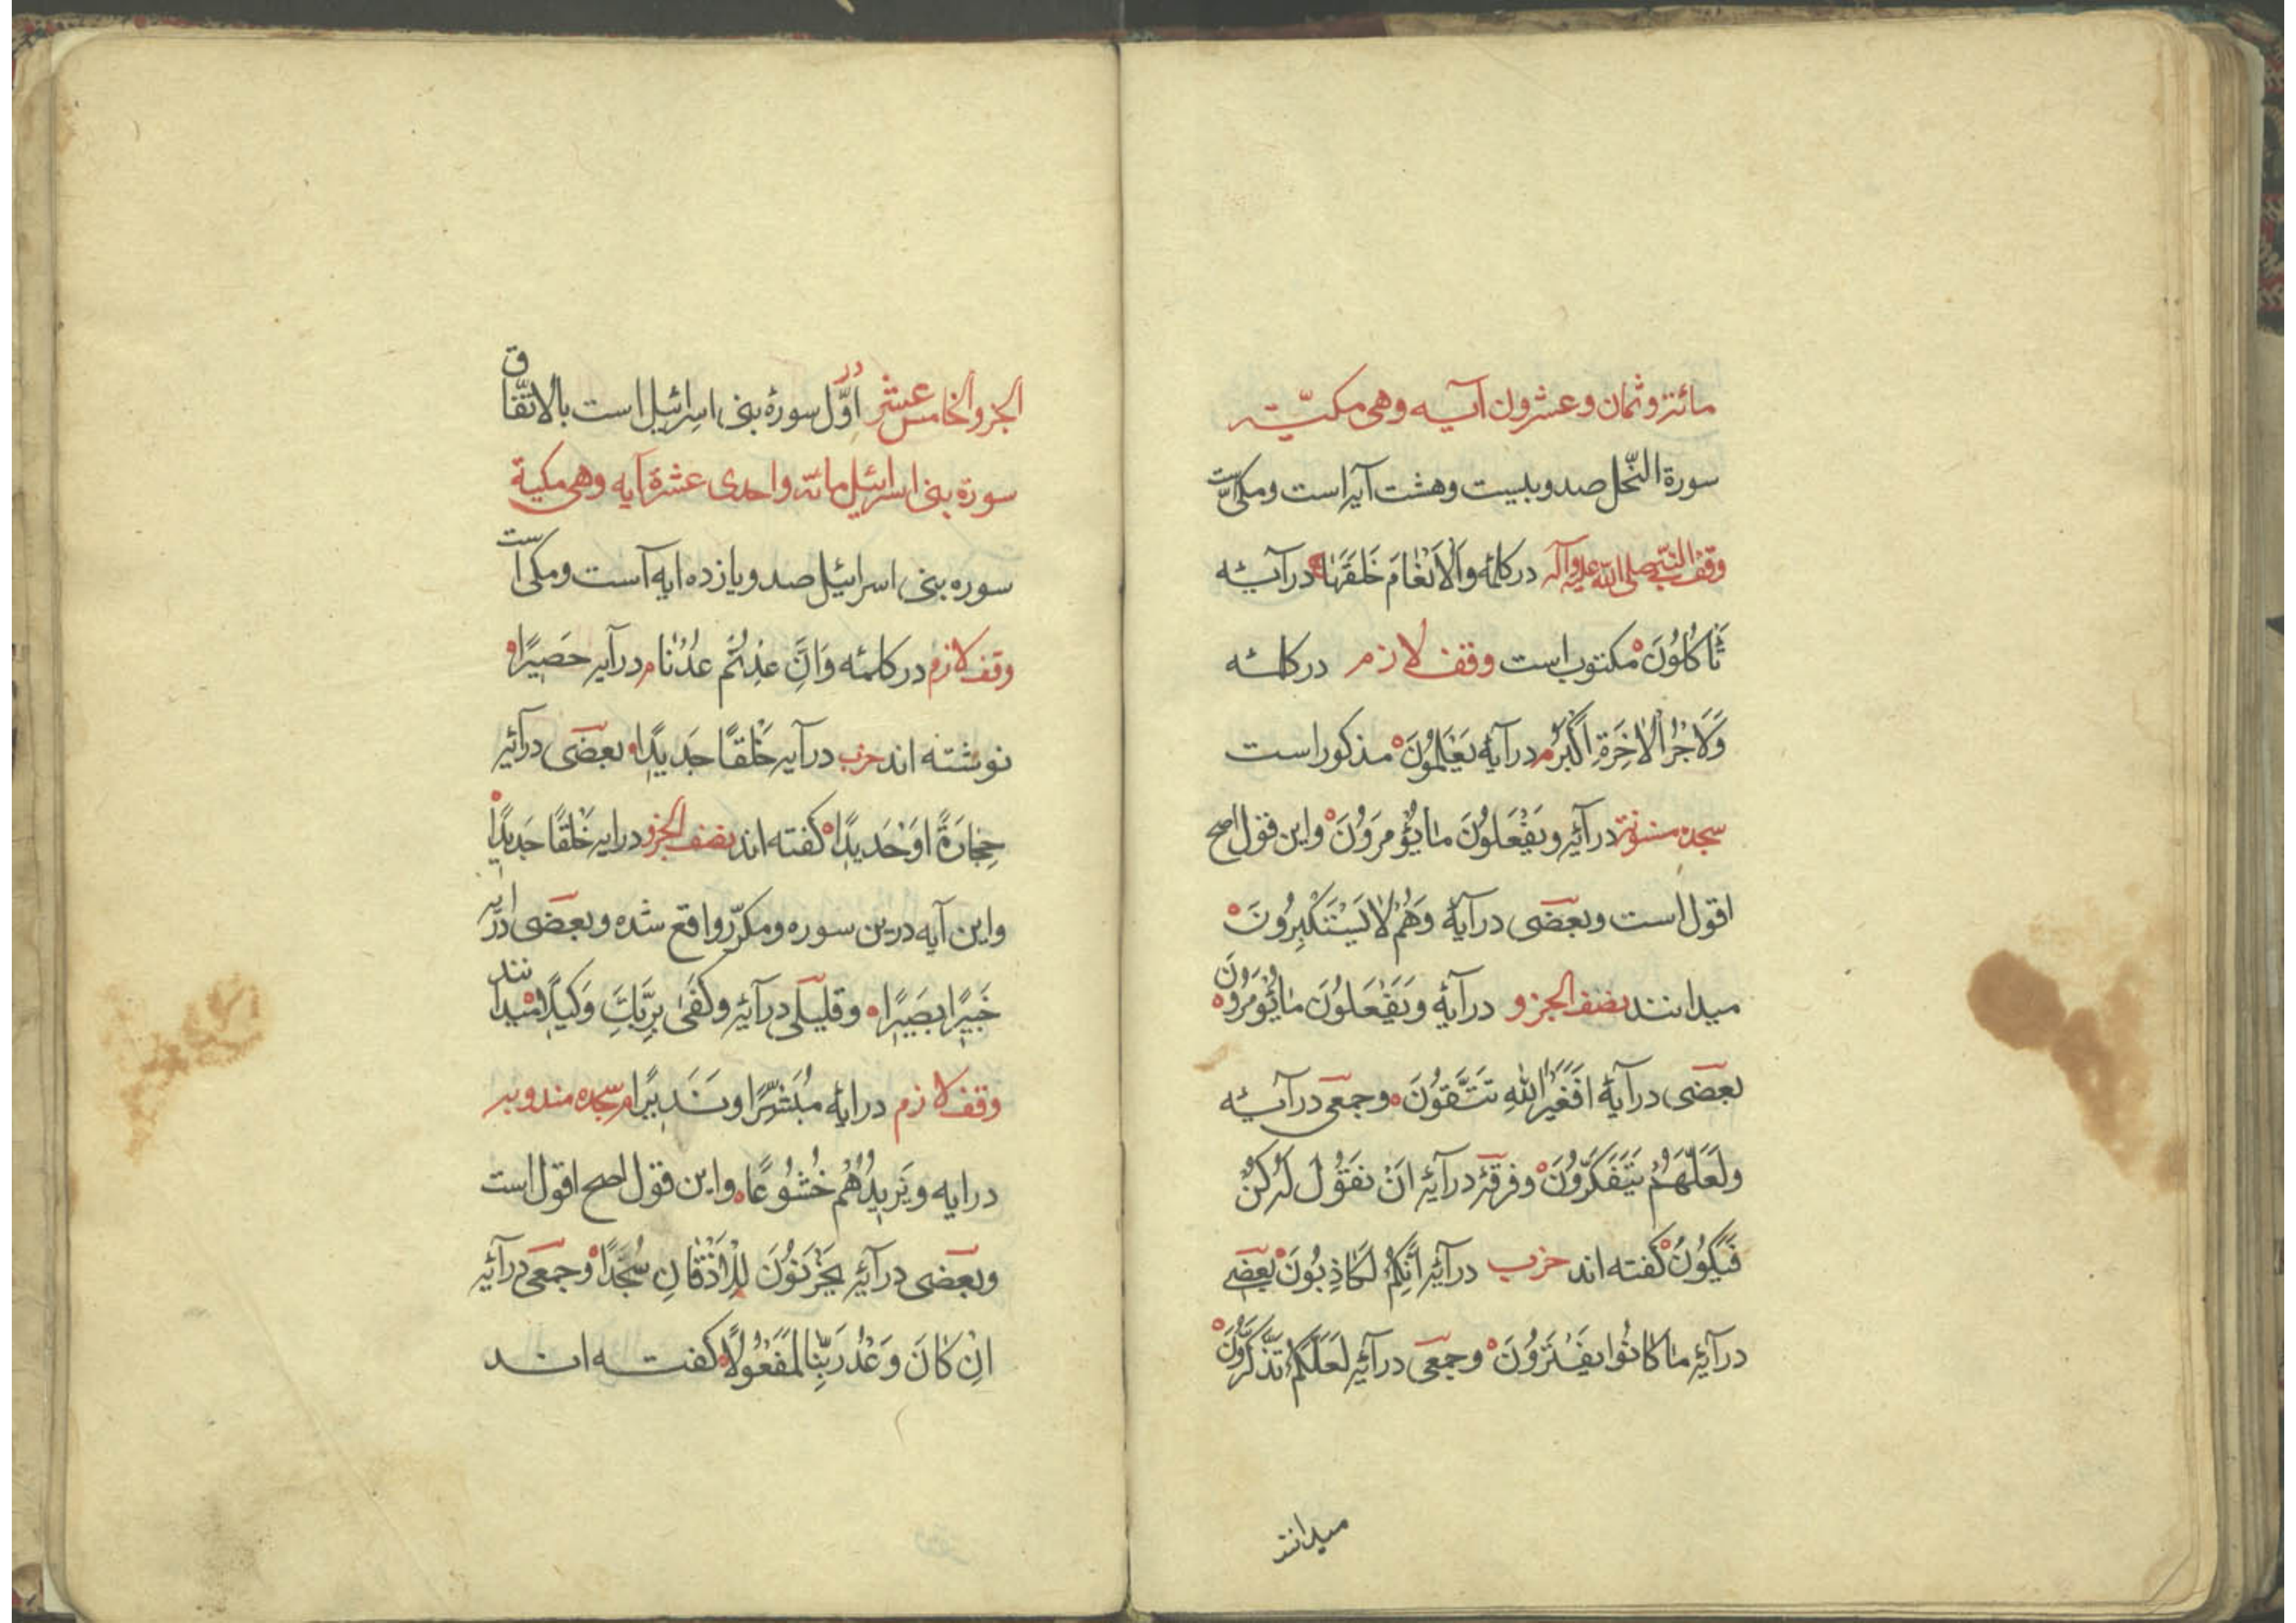 مائة وثمان وعشرون آیه وهی مکیّة
سورة النّحل صد و بیست و هشت آیه است و مکی است
وقف النّبی صلی الله علیه وآله در کلمهٔ وَالْاَنْعٰامَ خَلَقَهٰا در آیهٔ
تَأْكُلُونَ مکتوب است وقف لازم در کلمهٔ
وَلَاَجْرُ الْاٰخِرَةِ اَكْبَرُ م در آیهٔ یَعْلَمُونَ مذکور است
سجده مسنونة در آیهٔ وَیَفْعَلُونَ مٰا یُؤْمَرُونَ و این قول اصح
اقول است و بعضی در آیهٔ وَهُمْ لٰا یَسْتَكْبِرُونَ
میدانند نصف الجزو در آیهٔ وَیَفْعَلُونَ مٰا یُؤْمَرُونَ
بعضی در آیهٔ اَفَغَیْرَ اللّٰهِ تَتَّقُونَ و جمعی در آیهٔ
وَلَعَلَّهُمْ یَتَفَكَّرُونَ و فرقهٔ در آیهٔ اَنْ نَقُولَ لَهُ كُنْ
فَیَكُونُ گفته اند حزب در آیهٔ اِنَّكُمْ لَكٰاذِبُونَ بعضی
در آیهٔ مٰا كٰانُوا یَفْتَرُونَ و جمعی در آیهٔ لَعَلَّكُمْ تَذَكَّرُونَ
میدانند
الجزو الخامس عشر در اوّل سورهٔ بنی اسرائیل است بالاتّفاق
سورة بنی اسرائیل مائة واحدی عشرة آیه وهی مکیة
سوره بنی اسرائیل صد و یازده ایه است و مکی است
وقف لازم در کلمهٔ وَاِنْ عُدْتُمْ عُدْنٰا م در آیه حَصِیرًا
نوشته اند حزب در آیه خَلْقًا جَدِیدًا بعضی در آیهٔ
حِجٰارَةً اَوْ حَدِیدًا گفته اند نصف الجزو در ایه خَلْقًا جَدِیدًا
و این آیه درین سوره و مکرّر واقع شده و بعضی در ایه
خَبِیرًا بَصِیرًا و قلیلی در آیهٔ وَكَفَىٰ بِرَبِّكَ وَكِیلًا میدانند
وقف لازم در ایهٔ مُبَشِّرًا وَنَذِیرًا م سجده مندوبه
در ایه وَیَزِیدُهُمْ خُشُوعًا و این قول اصح اقول است
و بعضی در آیهٔ یَخِرُّونَ لِلْاَذْقٰانِ سُجَّدًا و جمعی در آیهٔ
اِنْ كٰانَ وَعْدُ رَبِّنٰا لَمَفْعُولًا گفته اند